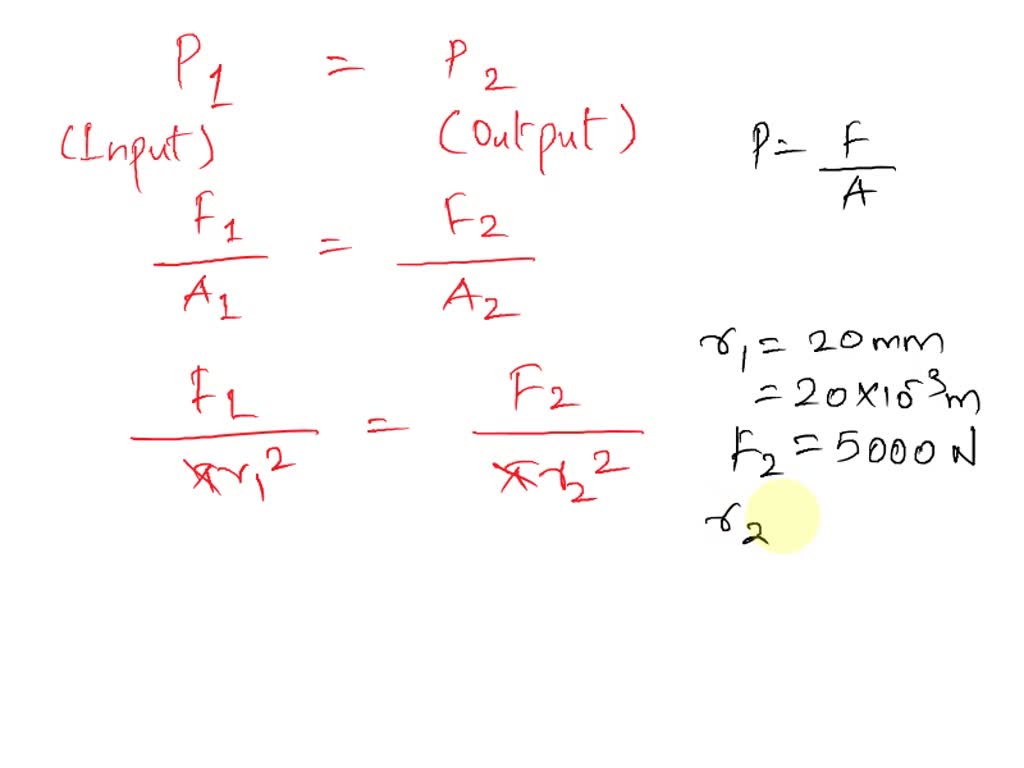 P1 = P2
(Input) (Output)
P = F/A
F1/A1 = F2/A2
r1 = 20mm
= 20×10⁻³m
F1/πr1² = F2/πr2²
F2 = 5000 N
r2